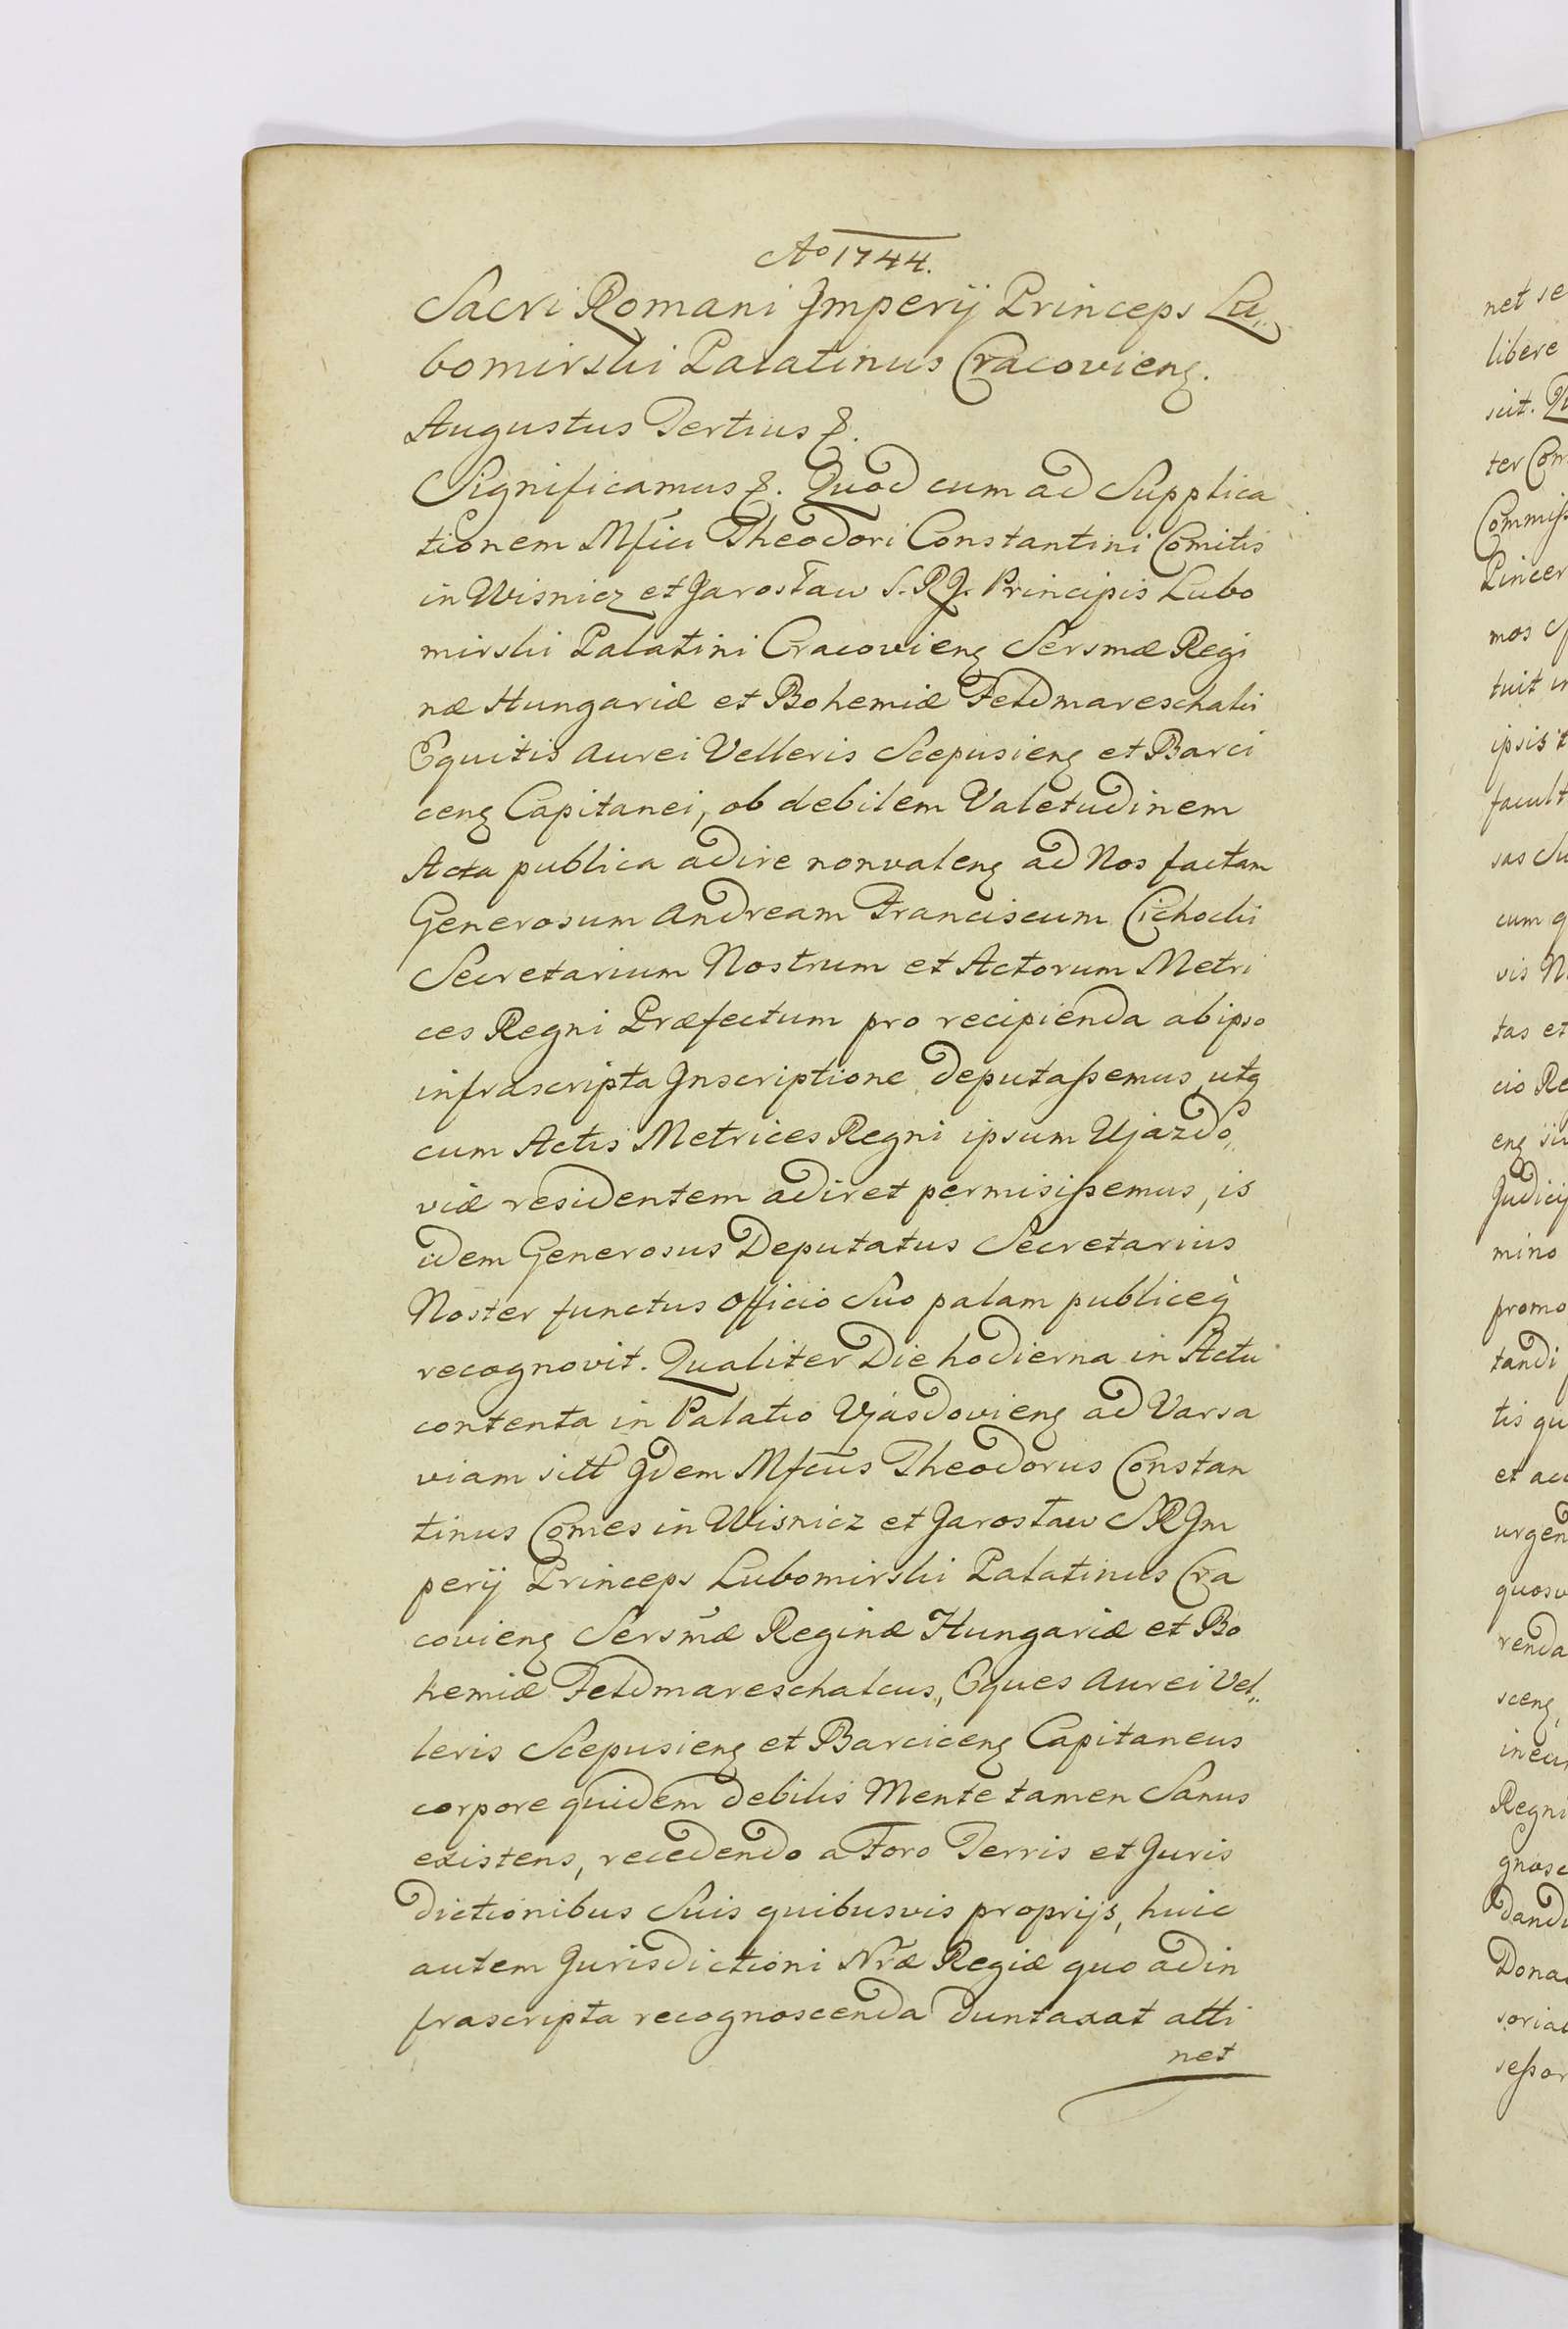 Ao 1744.
Sacri Romani Imperij Princeps Lu„
bomirski Palatinus Cracovieng.
Augustus Tertius &.
Significamus &. Quod cum ad Supplica
tionem Mfici Theodori Constantini Comitis
in Wisnicz et Jarosław S.R.J. Principis Lubo
mirski Palatini Cracovieng Sersmæ Regi
næ Hungariæ et Bohemiæ Feldmareschalii
Equitis Aurei Velleris Scepusieng et Barci
ceng Capitanei, ob debilem Valetudinem
Acta publica adire nonvaleng ad Nos factam
Generosum Andream Franciscum Cichocki
Secretarium Nostrum et Actorum Metri
ces Regni Præfectum pro recipienda ab ipso
infrascripta Inscriptione deputassemus utq
cum Actis Metrices Regni ipsum Ujazdo„
viæ residentem adiret permisissemus, is
idem Generosus Deputatus Secretarius
Noster functus Officio Suo palam publiceq
recognovit. Qualiter Die hodierna in Actu
contenta in Palatio Ujasdovieng ad Varsa
viam sitt Idem Mfcus Theodorus Constan
tinus Comes in Wisnicz et Jarosław S R Im
perij Princeps Lubomirski Palatinus Cra
covieng Sersmæ Reginæ Hungariæ et Bo
hemiæ Feldmareschalcus, Eques Aurei Vel„
leris Scepusieng et Barciceng Capitaneus
corpore quidem debilis Mente tamen Sanus
existens, recedendo a Foro Terris et Juris
dictionibus Suis quibusvis proprijs, huic
autem Jurisdictioni Nræ Regiæ quo ad in
frascripta recognoscenda duntaxat atti
net
net se
libere
scit.
ter Com
Commiss
Pincer
mos
tuit
ipsis
facult
sas Su
cum q
vis N
tas et
cio Re
eng
Judicij
mino
promo
tandi
tis qu
et acc
urgen
quosv
renda
sceng,
incur
Regni
gnosc
Dand
Dona
soria
sessor